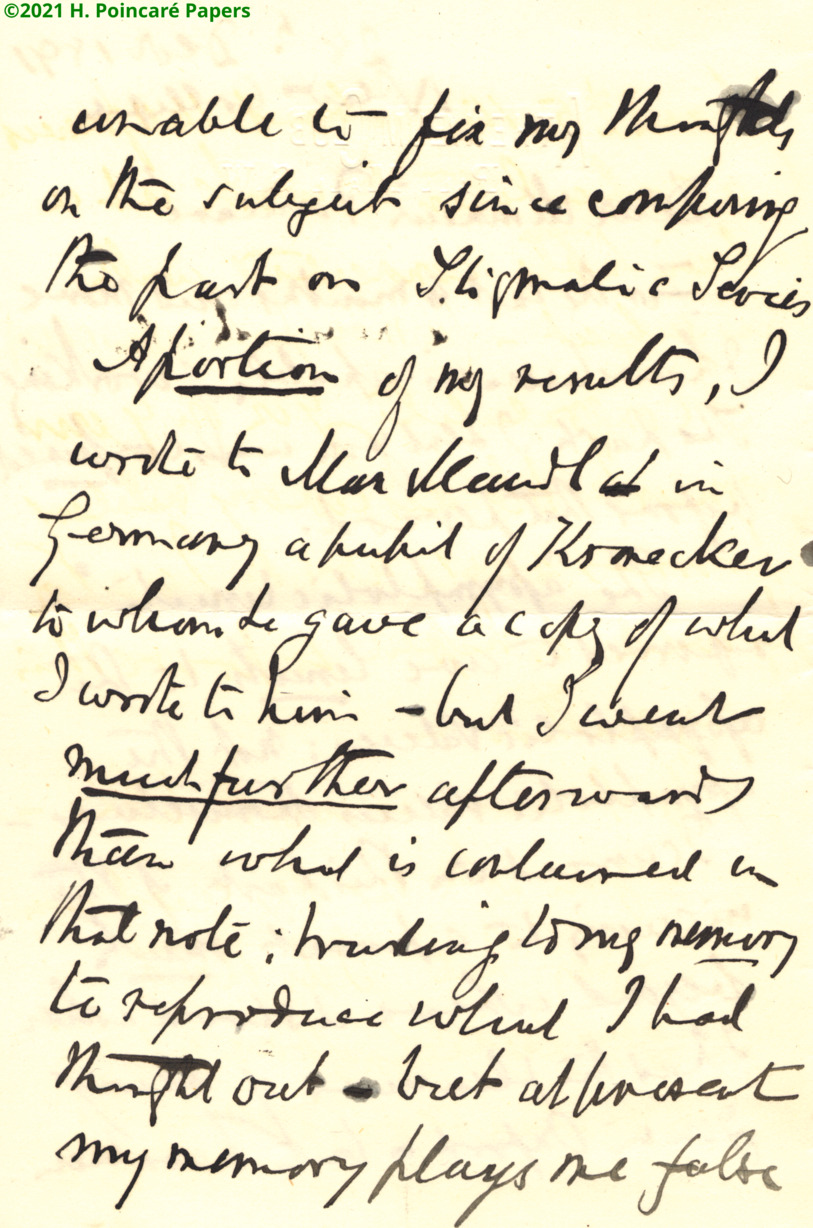 ©2021 H. Poincaré Papers
unable to fix my thoughts
on the subject since composing
the part on Stigmatic Series
A portion of my results, I
wrote to Max Mandl in
Germany a pupil of Kronecker
to whom he gave a copy of what
I wrote to him – but I went
much further afterwards
than what is contained in
that note ; trusting to my memory
to reproduce what I had
thought out – but at present
my memory plays me false